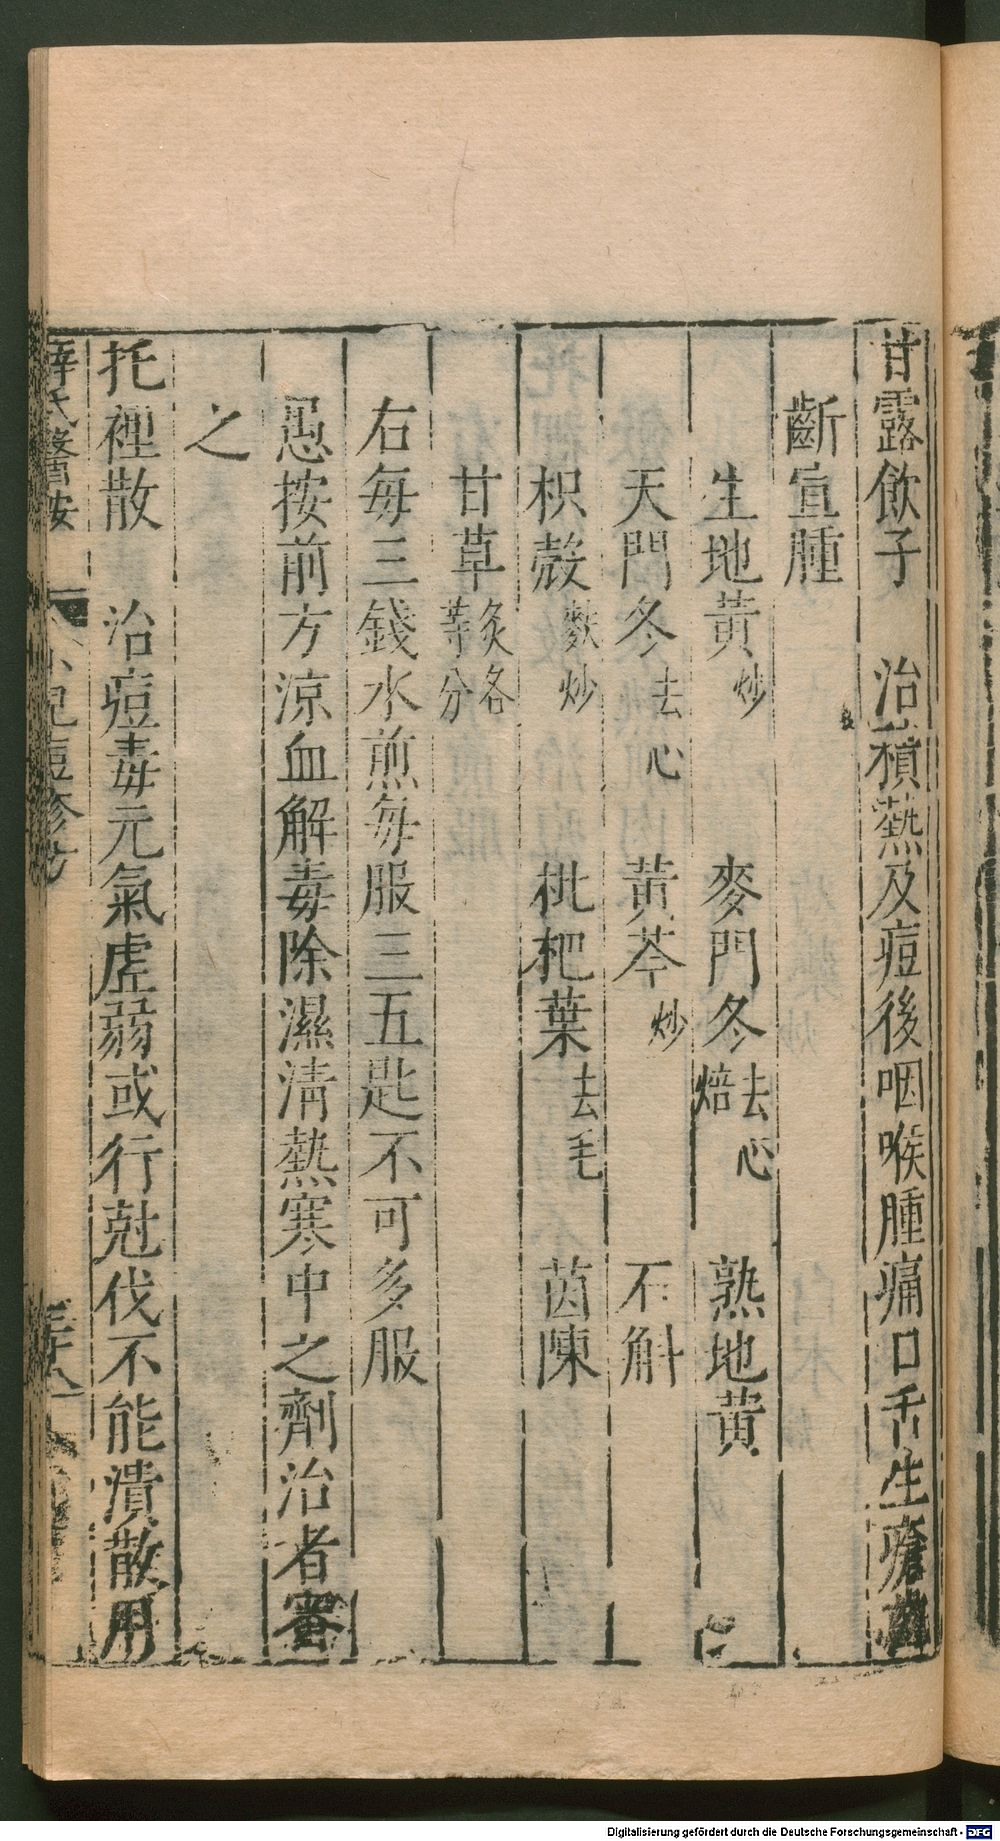 甘露飲子　治積熱及痘後咽喉腫痛口舌生瘡齒
齗宣腫
生地黃炒　麥門冬去心焙　熟地黃
天門冬去心　黃芩炒　石斛
枳殼麩炒　枇杷葉去毛　茵陳
甘草炙各等分
右每三錢水煎每服三五匙不可多服
愚按前方涼血解毒除濕清熱寒中之劑治者審
之
托裡散　治痘毒元氣虛弱或行尅伐不能潰散用
薛氏醫按　小兒痘疹方
Digitalisierung gefördert durch die Deutsche Forschungsgemeinschaft - DFG